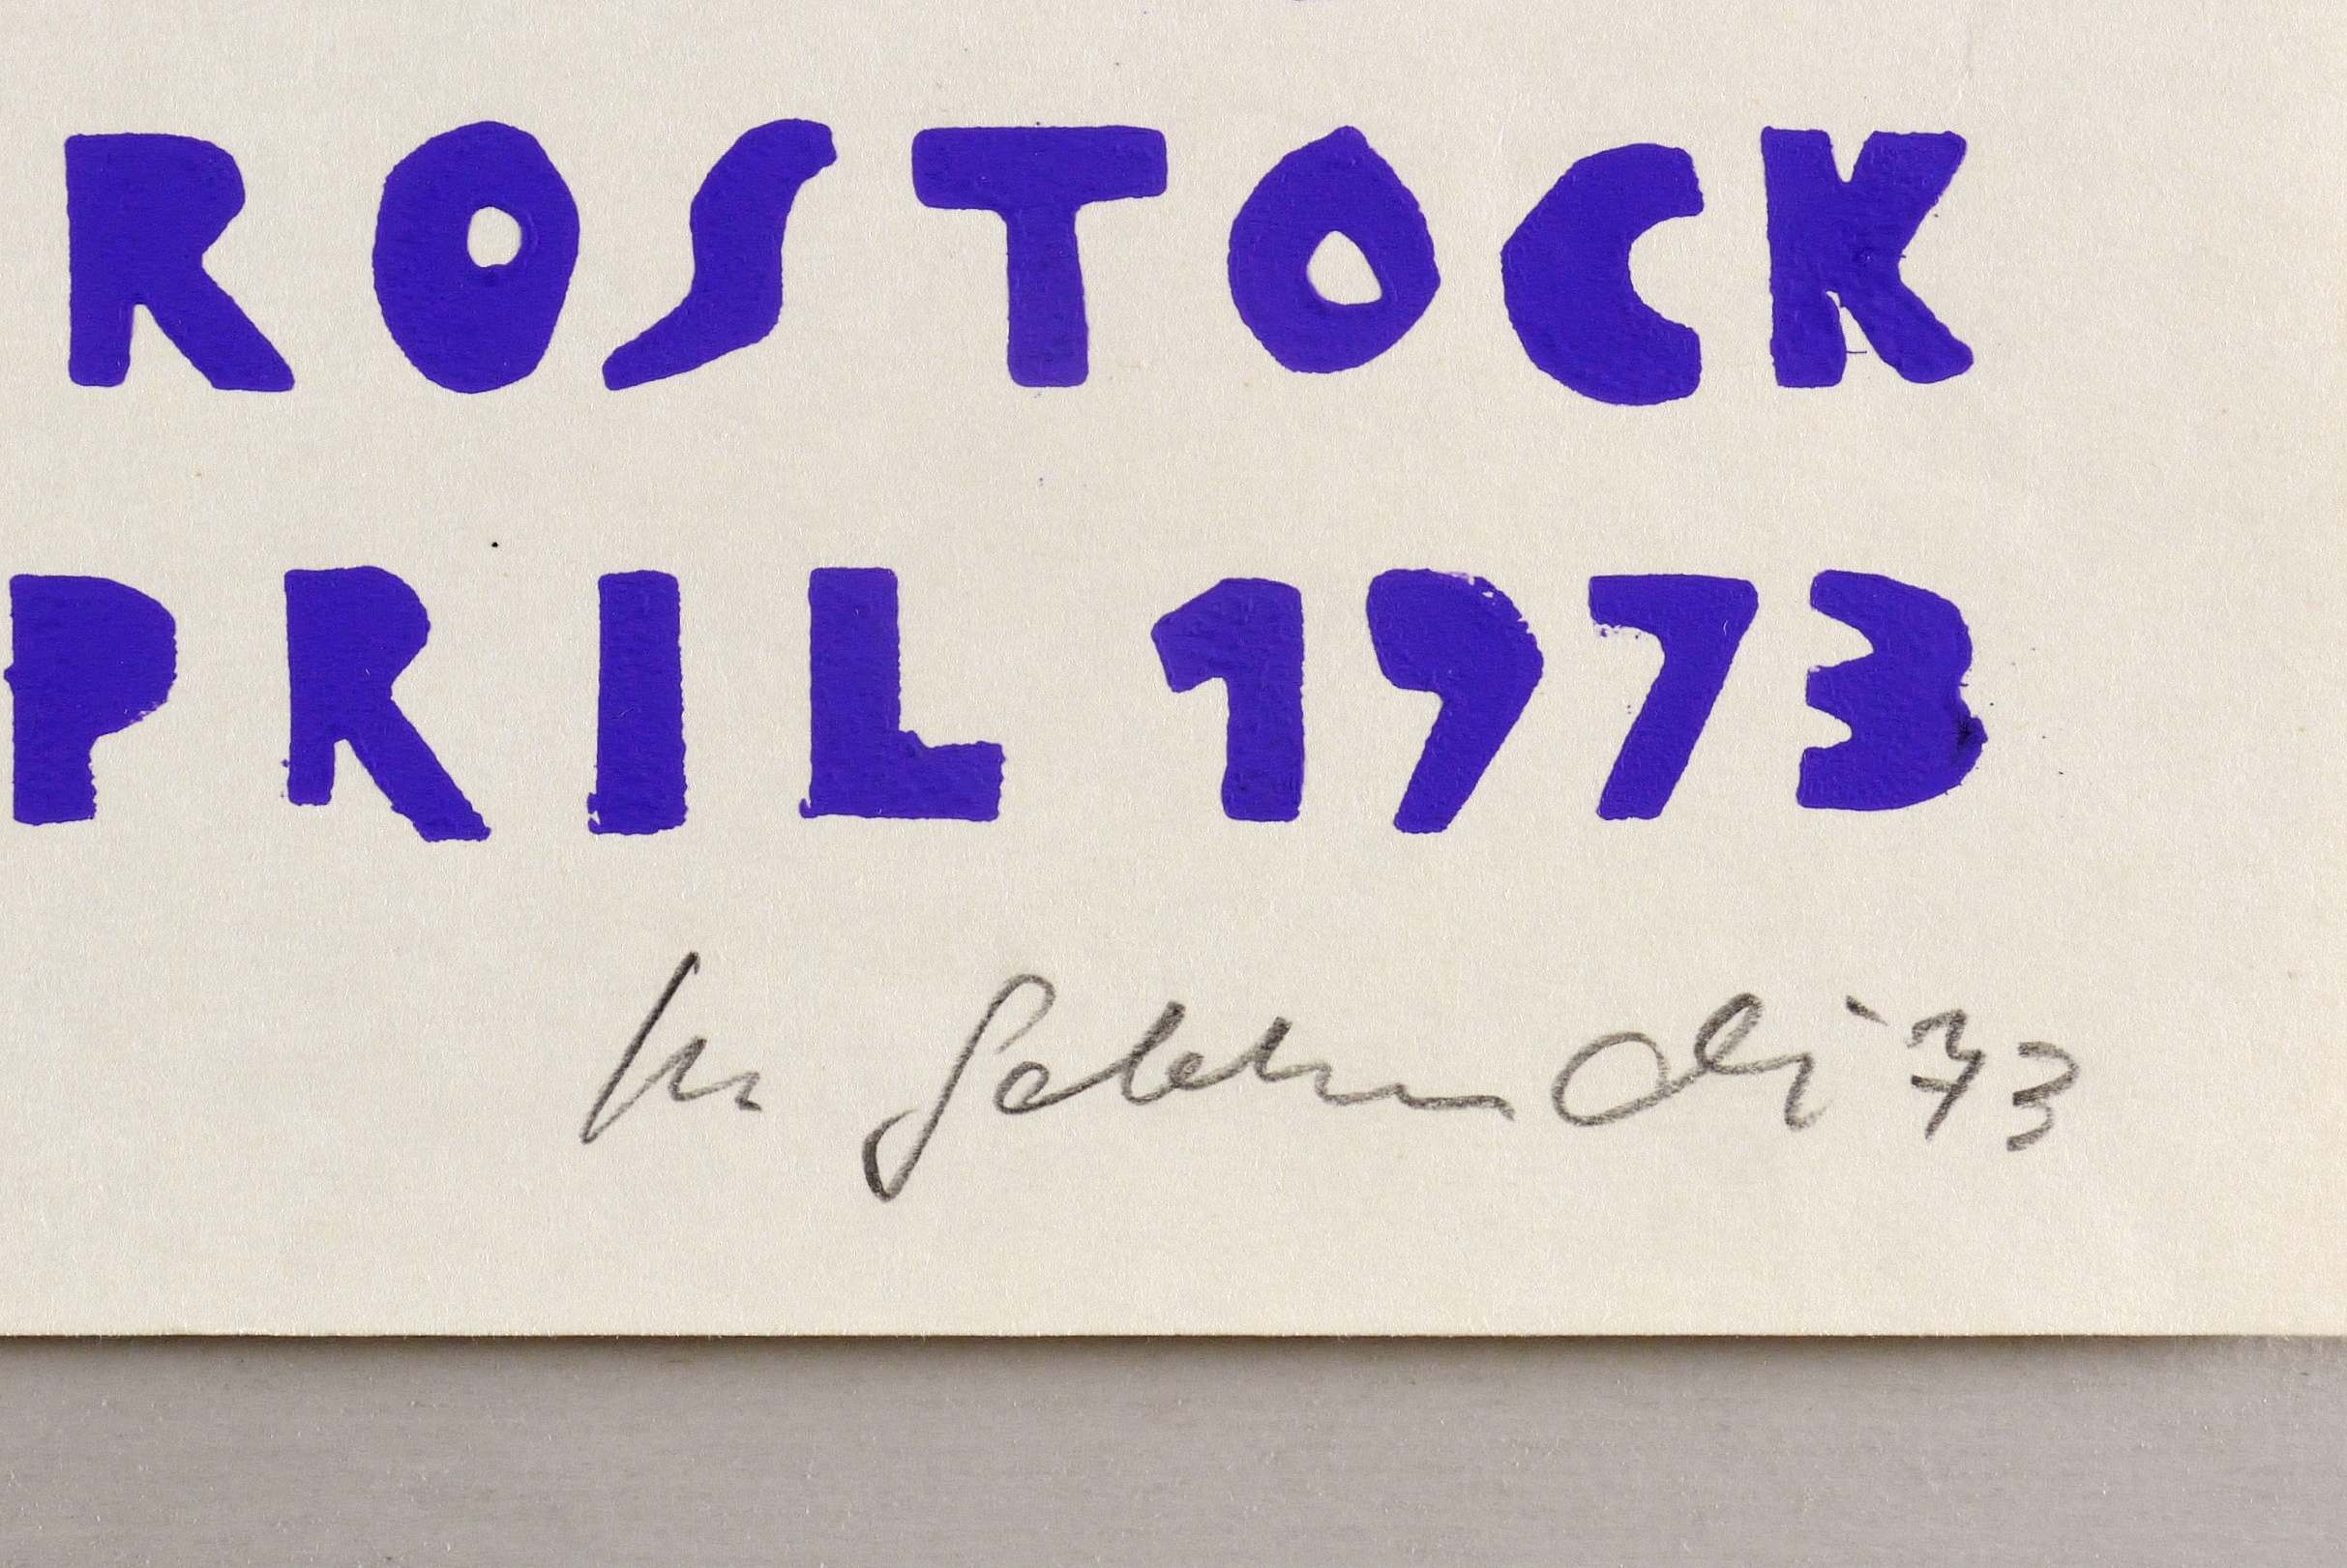 ROSTOCK
PRIL 1973
73